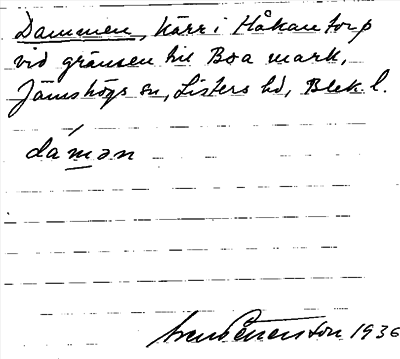 Dammen, kärr i Håkantorp
vid gränsen till Boa mark,
Jämshögs sn, Listers hd, Blek. l.
dámən
1936